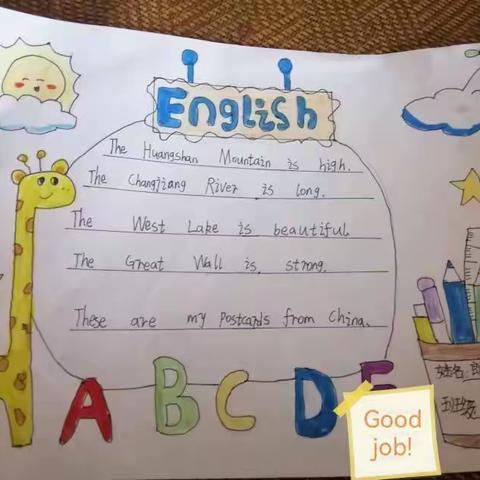 English
The Huangshan Mountain is high.
The Changjiang River is long.
The West Lake is beautiful
The Great Wall is strong.
These are my postcards from China.
A B C D E
姓名:
班级
Good
job!